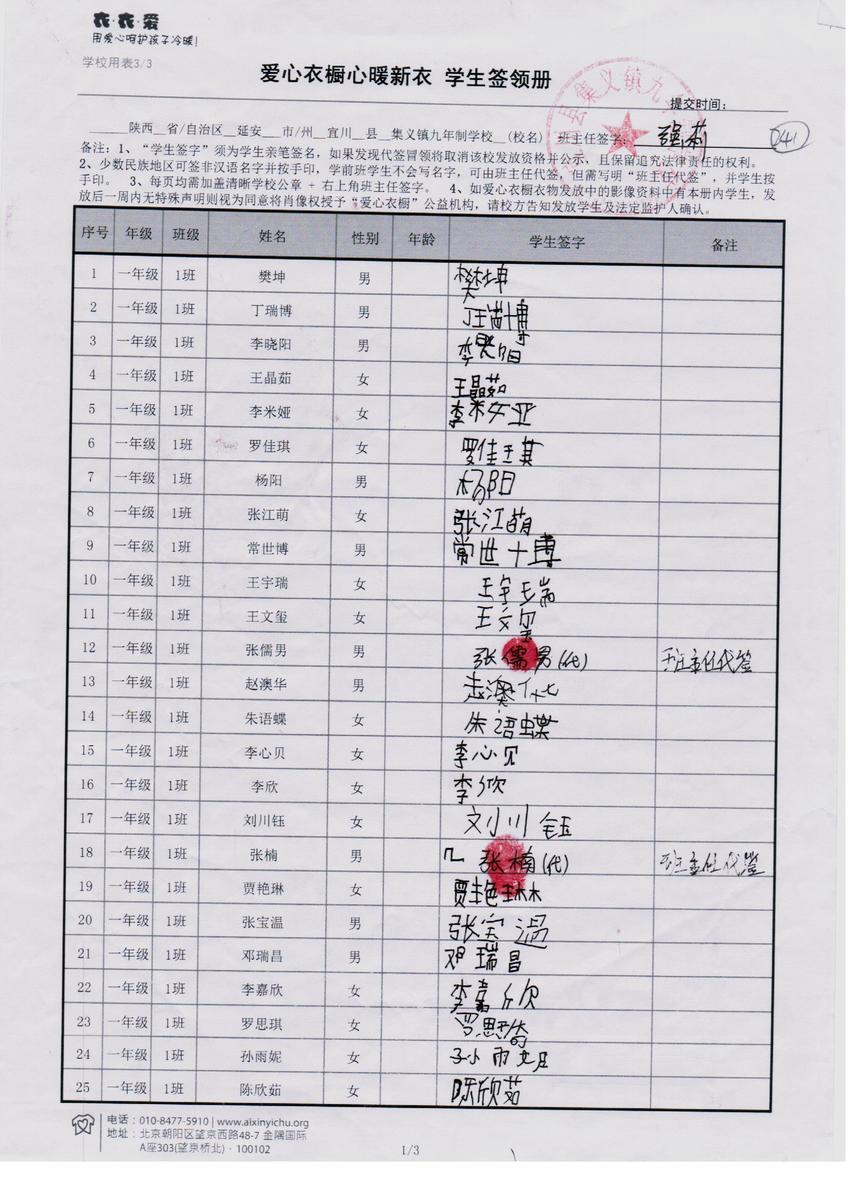 衣·衣·爱
用爱心呵护孩子冷暖!
学校用表3/3
爱心衣橱心暖新衣 学生签领册
县集义镇九
提交时间:
陕西__省/自治区__延安___市/州__宜川__县__集义镇九年制学校__(校名) 班主任签字: 强莉 041
备注:1、“学生签字”须为学生亲笔签名,如果发现代签冒领将取消该校发放资格并公示,且保留追究法律责任的权利。
2、少数民族地区可签非汉语名字并按手印,学前班学生不会写名字,可由班主任代签,但需写明“班主任代签”,并学生按
手印。 3、每页均需加盖清晰学校公章 + 右上角班主任签字。 4、如爱心衣橱衣物发放中的影像资料中有本册内学生,发
放后一周内无特殊声明则视为同意将肖像权授予“爱心衣橱”公益机构,请校方告知发放学生及法定监护人确认。
序号 年级 班级 姓名 性别 年龄 学生签字 备注
1 一年级 1班 樊坤 男 樊坤
2 一年级 1班 丁瑞博 男 丁瑞博
3 一年级 1班 李晓阳 男 李晓阳
4 一年级 1班 王晶茹 女 王晶茹
5 一年级 1班 李米娅 女 李米娅
6 一年级 1班 罗佳琪 女 罗佳琪
7 一年级 1班 杨阳 男 杨阳
8 一年级 1班 张江萌 女 张江萌
9 一年级 1班 常世博 男 常世博
10 一年级 1班 王宇瑞 女 王宇瑞
11 一年级 1班 王文玺 女 王文玺
12 一年级 1班 张儒男 男 张儒男(代) 班主任代签
13 一年级 1班 赵澳华 男 赵澳华
14 一年级 1班 朱语蝶 女 朱语蝶
15 一年级 1班 李心贝 女 李心贝
16 一年级 1班 李欣 女 李欣
17 一年级 1班 刘川钰 女 刘川钰
18 一年级 1班 张楠 男 张楠(代) 班主任代签
19 一年级 1班 贾艳琳 女 贾艳琳
20 一年级 1班 张宝温 男 张宝温
21 一年级 1班 邓瑞昌 男 邓瑞昌
22 一年级 1班 李嘉欣 女 李嘉欣
23 一年级 1班 罗思琪 女 罗思琪
24 一年级 1班 孙雨妮 女 孙雨妮
25 一年级 1班 陈欣茹 女 陈欣茹
电话:010-8477-5910 | www.aixinyichu.org
地址:北京朝阳区望京西路48-7 金隅国际
A座303(望京桥北)·100102
1/3